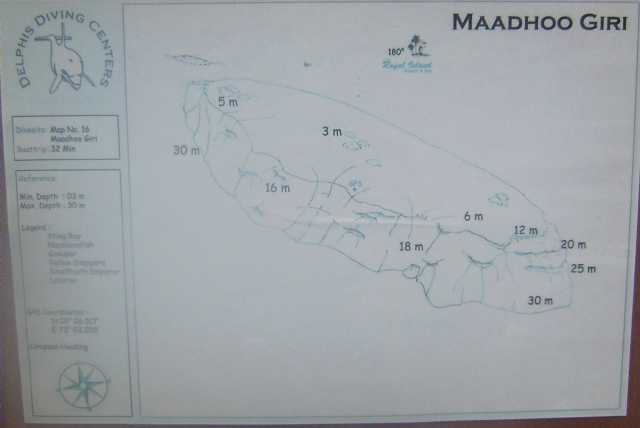 DELPHIS DIVING CENTERS
MAADHOO GIRI
180°
Royal Island
Resort & Spa
Divesite: Map No. 16
Maadhoo Giri
Boattrip: 32 Min
Reference
Min. Depth : 03 m
Max. Depth : 30 m
Legend :
Sting Ray
Napoleonfish
Grouper
Yellow Snappers
Smalltooth Emperor
Lobster
GPS Coordinates :
Compass Heading
5 m
3 m
30 m
16 m
GPS
6 m
12 m
18 m
20 m
25 m
30 m